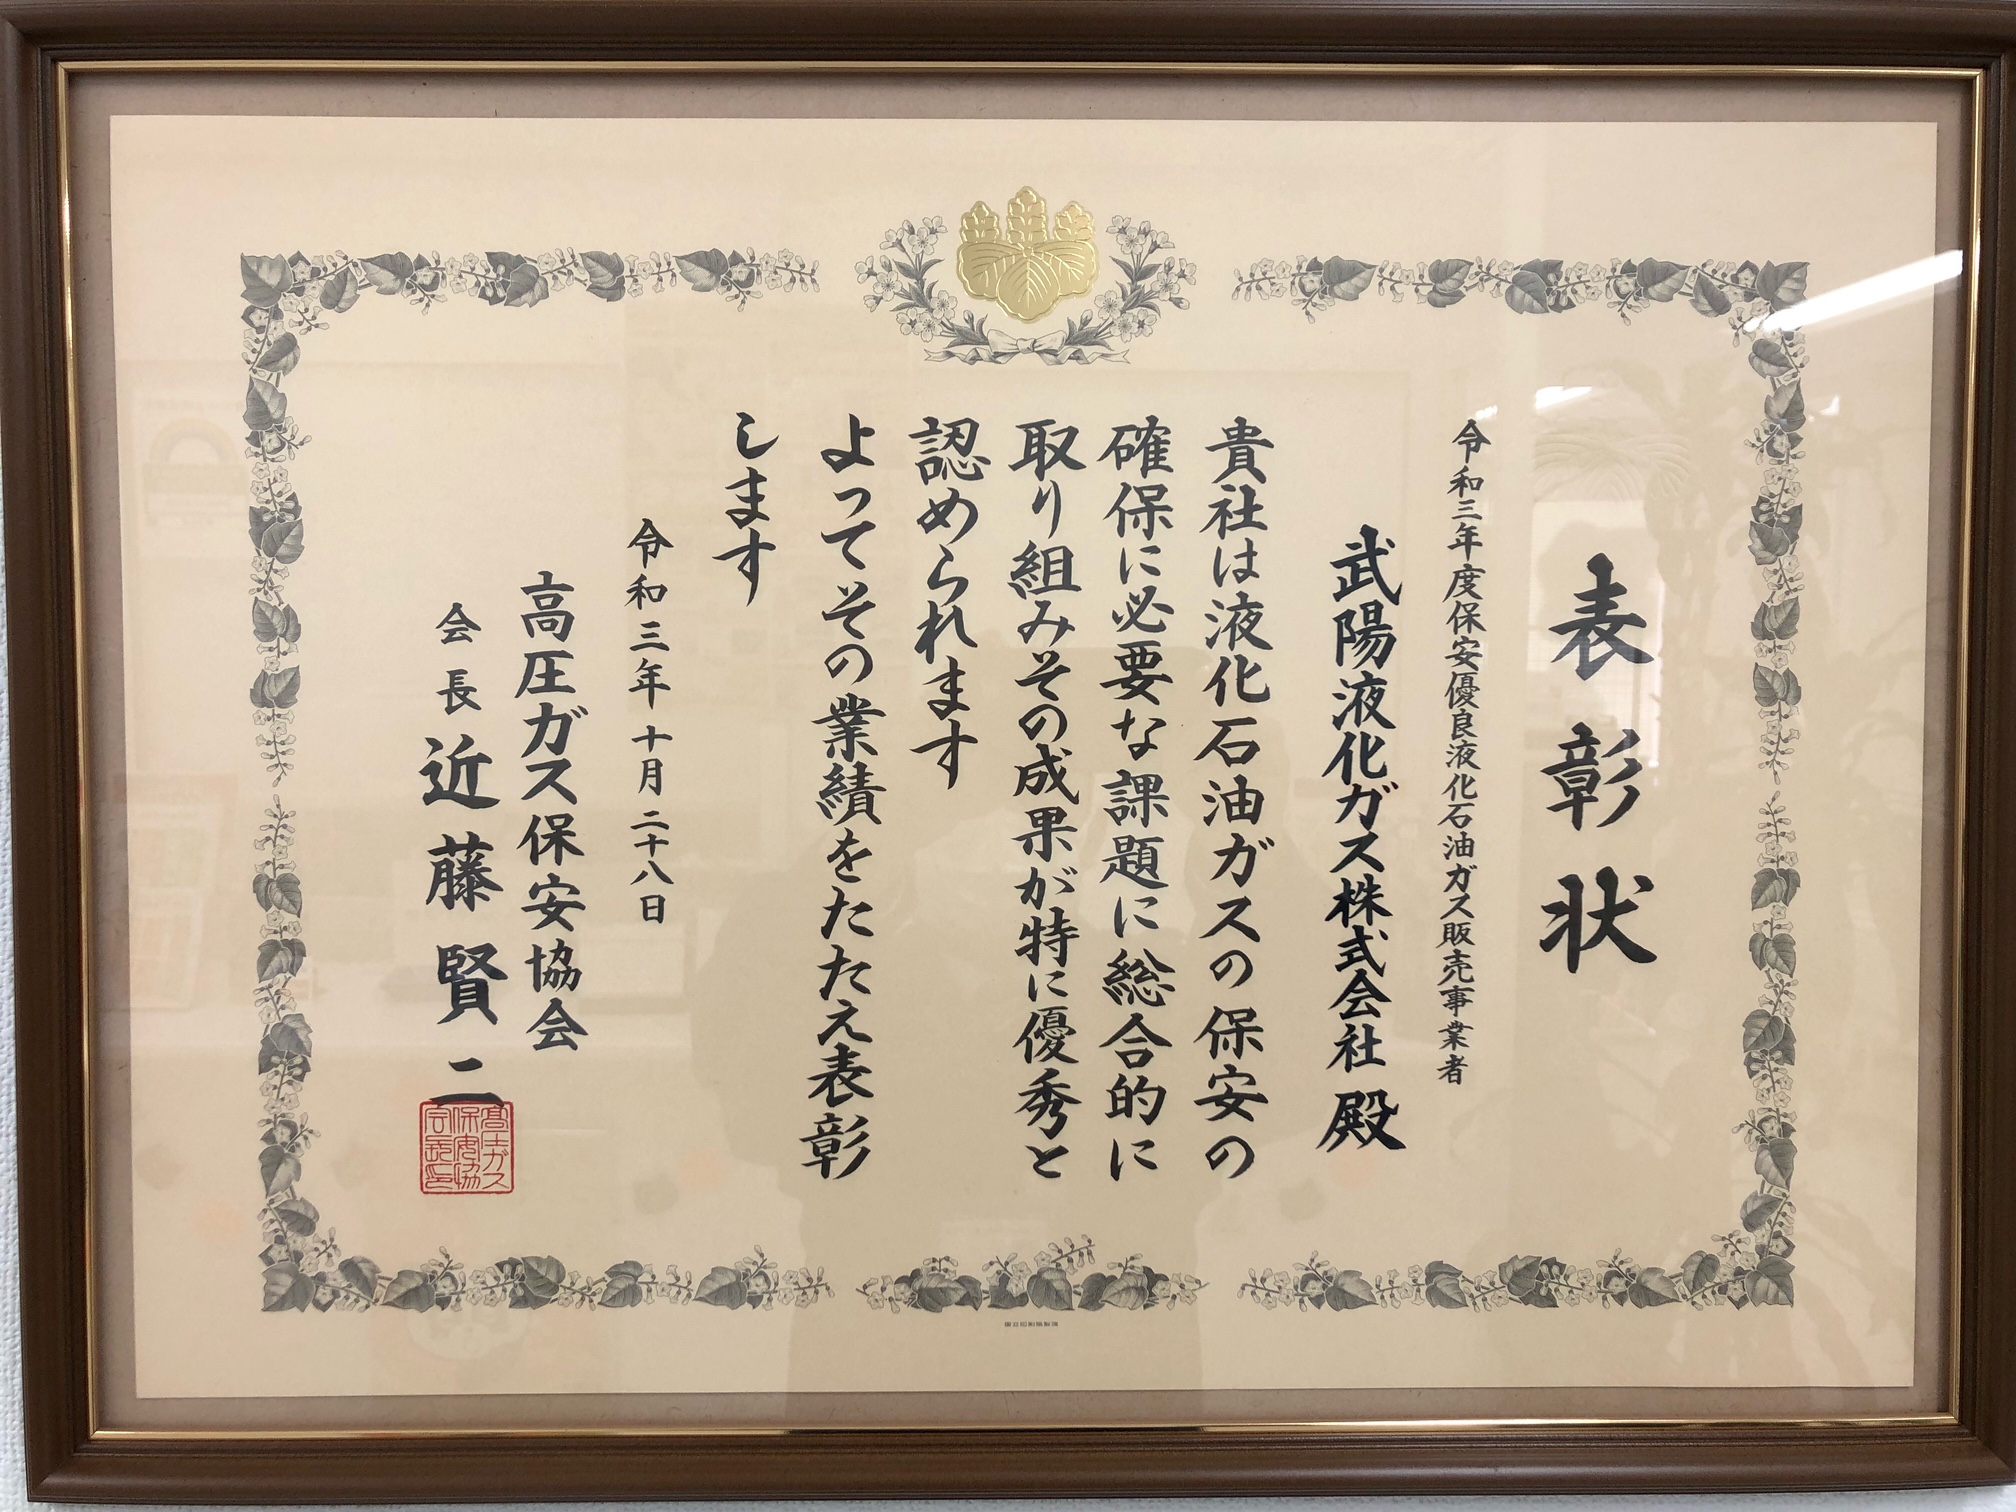 表彰状
令和三年度保安優良液化石油ガス販売事業者
武陽液化ガス株式会社 殿
貴社は液化石油ガスの保安の
確保に必要な課題に総合的に
取り組みその成果が特に優秀と
認められます
よってその業績をたたえ表彰
します
令和三年十月二十八日
高圧ガス保安協会
会長 近藤賢二
高圧ガス
保安協
会長印